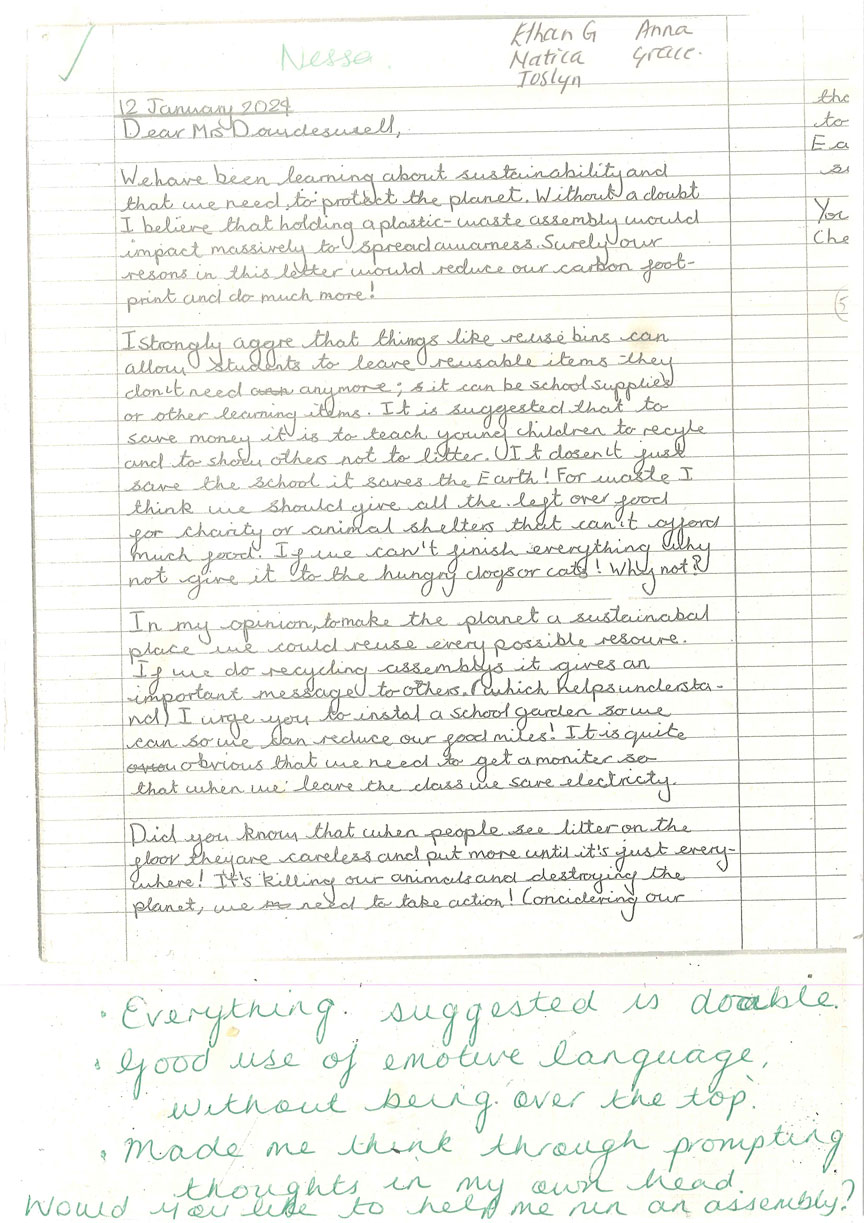 Nessa
Ethan G Anna
Matica Grace.
Joslyn
12 January 2024
Dear Mrs Dowdeswell,
We have been learning about sustainability and
that we need to protect the planet. Without a doubt
I believe that holding a plastic-waste assembly would
impact massively to spread awarness. Surely our
resons in this letter would reduce our carbon foot-
print and do much more!
I strongly aggre that things like reuse bins can
allow students to leave reusable items they
don't need anymore; sit can be school supplies
or other learning items. It is suggested that to
save money it is to teach young children to recyle
and to show others not to litter. It dosen't just
save the school it saves the Earth! For waste I
think we should give all the left over food
for charity or animal shelters that can't afford
much food. If we can't finish everything why
not give it to the hungry dogs or cats! Why not?
In my opinion, to make the planet a sustainabal
place we could reuse every possible resoure.
If we do recycling assemblys it gives an
important message to others. (which helps understa-
nd) I urge you to instal a school garden so we
can so we can reduce our food miles! It is quite
obvious that we need to get a moniter so
that when we leave the class we save electricty.
Did you know that when people see litter on the
floor they are careless and put more until it's just every-
where! It's killing our animals and destroying the
planet, we need to take action! Concidering our
tha
to
Ea
You
Che
5
• Everything suggested is doable.
• Good use of emotive language,
without being over the top.
• Made me think through prompting
thoughts in my own head.
Would you like to help me run an assembly?